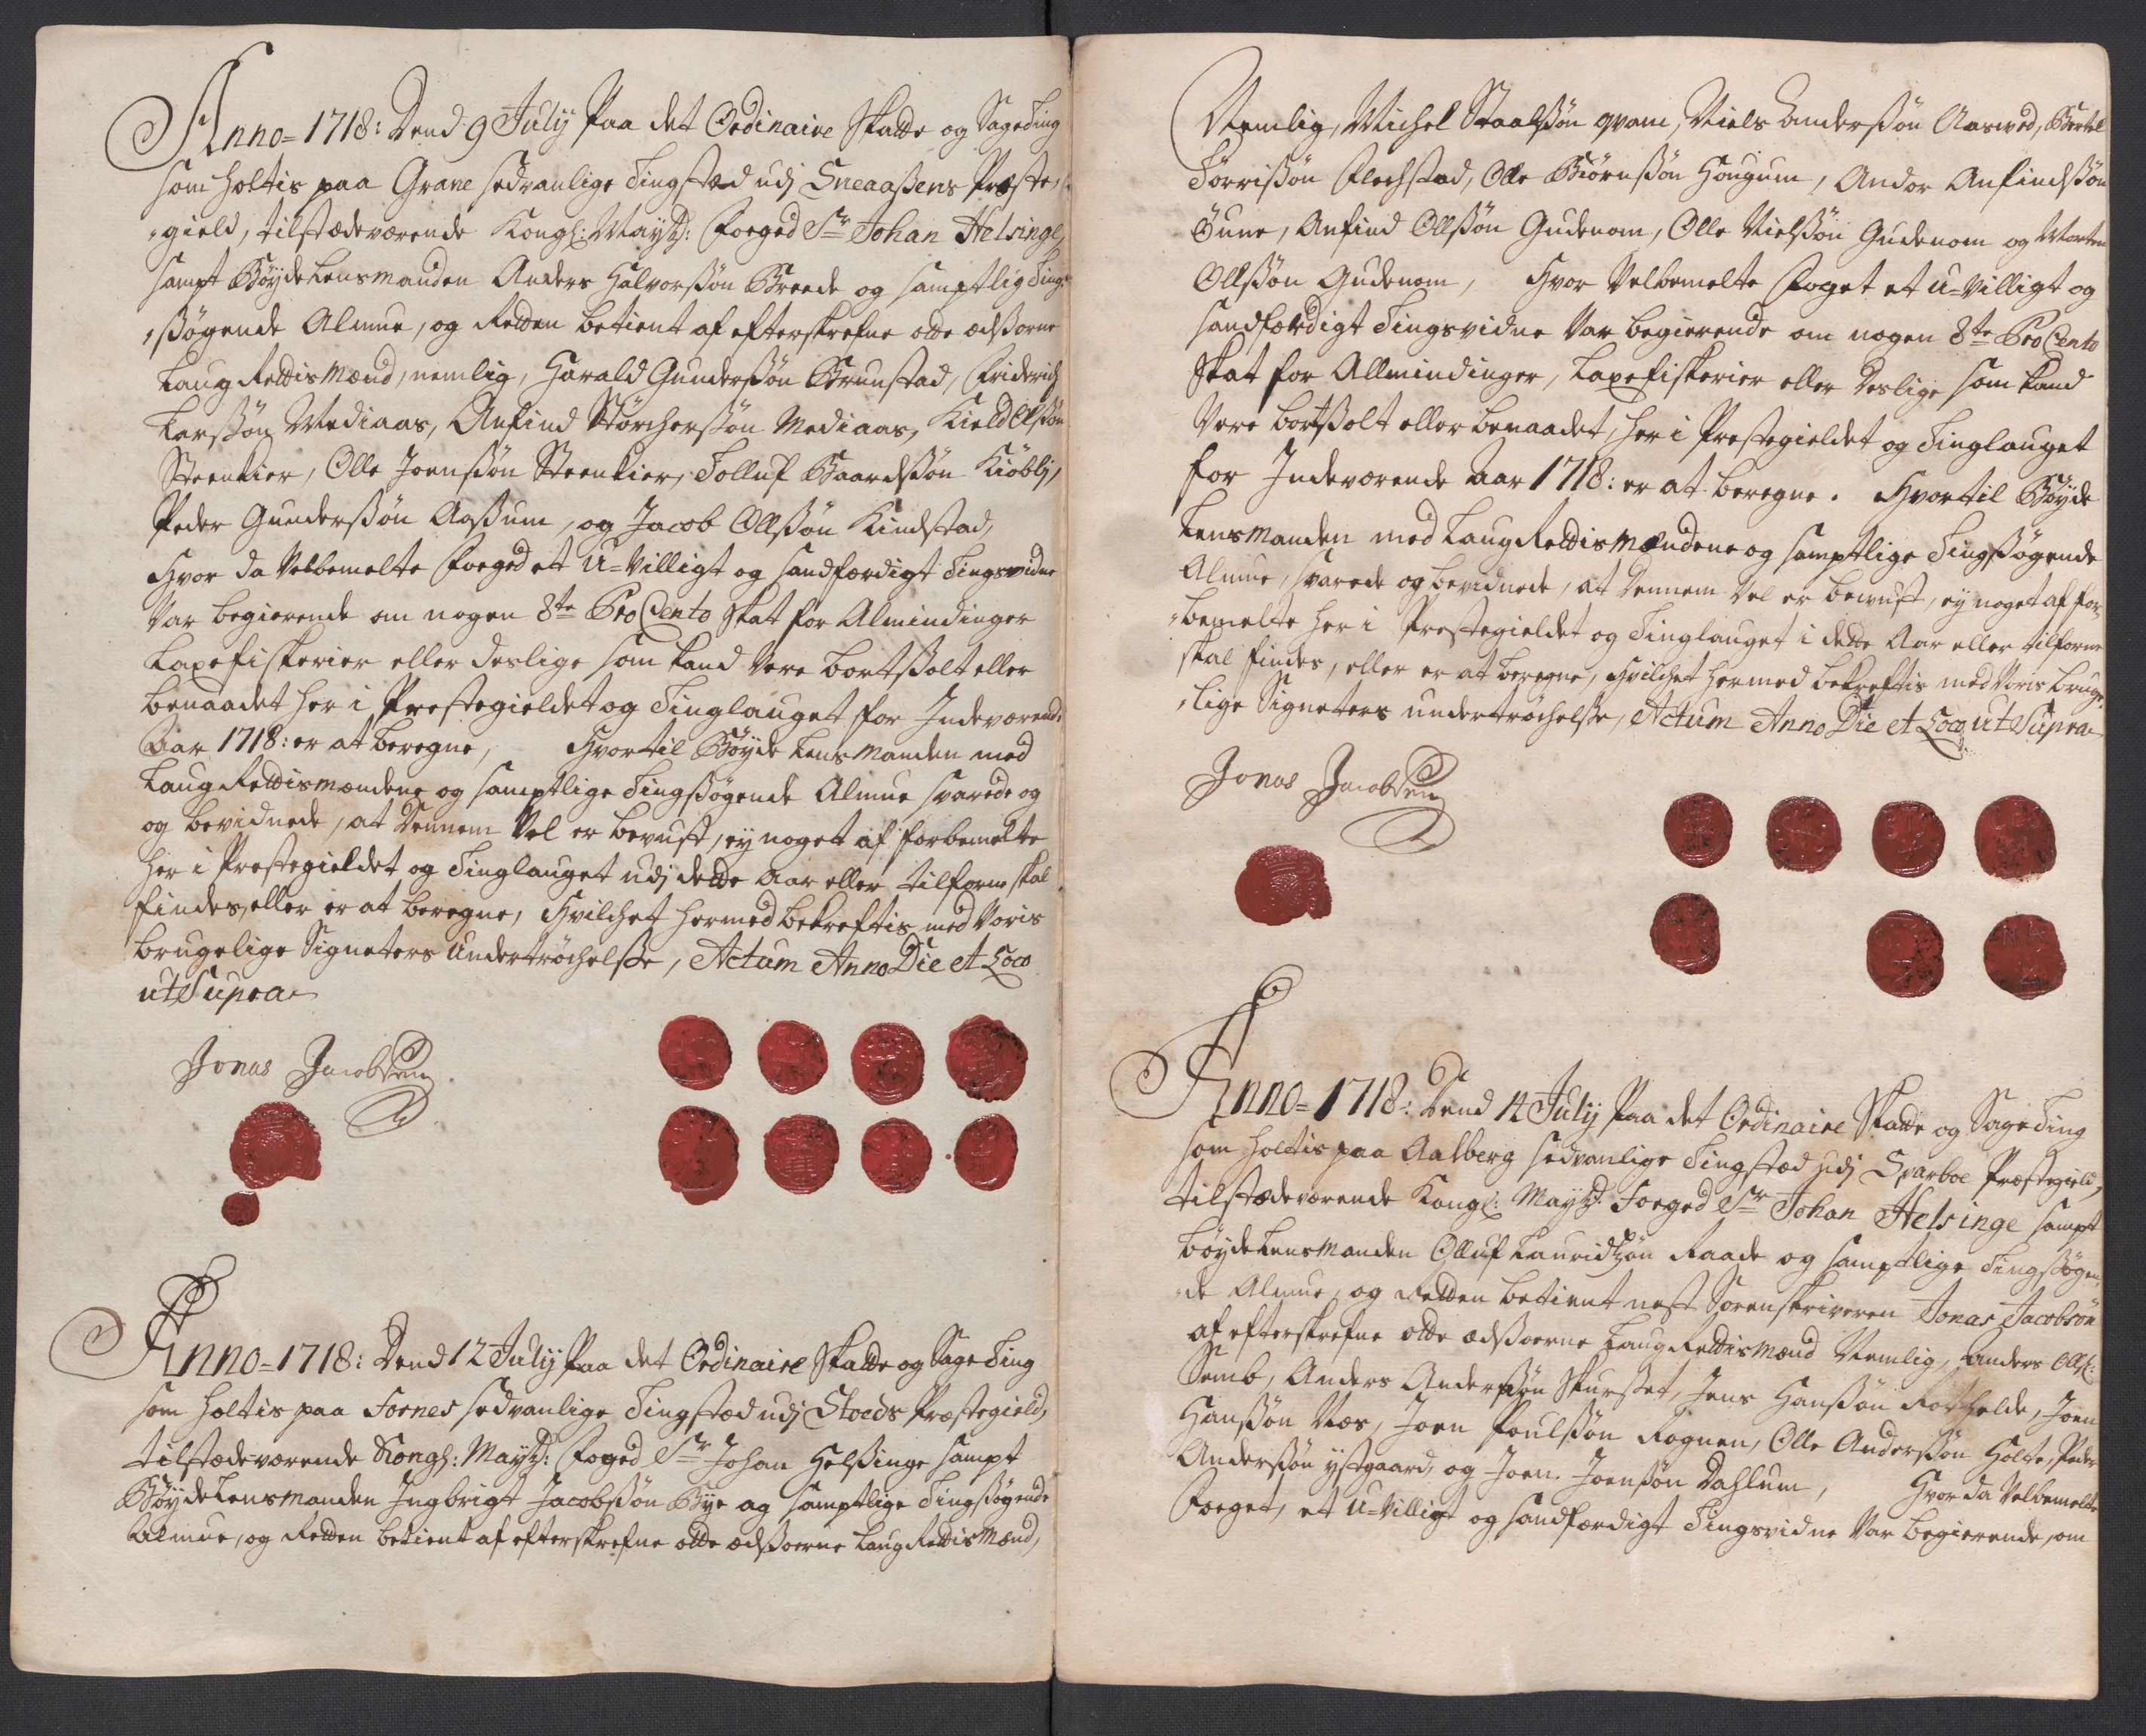 Anno = 1718: Dend 9 July Paa det Ordinaire Skatte og Sageting
som holtis paa Grane sedvanlige Tingstæd udj Sneaaßens Præste-
gield, tilstædeværende Kongl: Mayts: Foeged Sr Johan Helsinge,
sampt Böyde Lensmanden Anders Halvorßön Breede og samptlig Ting-
ßögende Almue, og Retten betient af efterskrefne otte ædßorne
Laug Rettis Mænd, nemlig, Harald Gunderßön Brunstad, Friderich
Larßön Mediaas, Anfind Störcherßön Mediaas, Kield Olßön
Steenkier, Olle Joensßön Steenkier, Tolluf Baardsßön Kiöblj,
Peder Gunderßön Aaßum, og Jacob Ollßön Kindstad,
Hvor da Velbemelte Foeged et U-Villigt og sandfærdigt Tingsvidne
Var begierende om nogen 8te Pro Cento Skat for Almindinger
Laxefiskerier eller deslige som kand Vere bortßolt eller
benaadet her i Prestegieldet og Tinglauget for Indeværende
Aar 1718: er at beregne, Hvortil Böyde Lensmanden med
Laug Rettismændene og samptlige Tingßögende Almue svarede og
og bevidnede, at Dennem Vel er bevust, ej noget af forbemelte
her i Prestegieldet og Tinglauget udj dette Aar eller tilforne skal
findes, eller er at beregne, Hvilchet hermed bekreftis med Voris
brugelige Signeters Undertröchelße, Actum Anno Die et Loco
ut Supra
Jonas Jacobsen
Anno = 1718: Dend 12 July Paa det Ordinaire Skatte og Sage Ting
som holtis paa Fornes sedvanlige Tingstæd udj Stoeds Præstegield,
tilstædeværende Kongl: Mayts: Foged Sr Johan Helsinge sampt
Böyde Lensmanden Ingbrigt Jacobsßön Bye og samptlige Tingßögende
Almue, og Retten betient af efterskrefne otte ædßoerne Laug Rettis Mænd,
Nemlig, Michel Staalßön qvam, Niels Anderßön Aasved, Bertel
Törrißön Flechstad, Olle Biörnßön Hougum, Andor Anfindßön
Öune, Anfind Ollßön Gudenom, Olle Nielßön Gudenom og Morten
Ollßön Gudenom, Hvor Velbemelte Foget et U-Villigt og
sandfærdigt Tingsvidne Var begierende om nogen 8te Pro Cento
Skat for Allmindinger, Laxefiskerier eller deslige som kand
Vere bortßolt eller benaadet, her i Prestegieldet og Tinglauget
for Indeværende Aar 1718: er at beregne. Hvortil Böyde
Lensmanden med Laug Rettismændene og samptlige Tingßögende
Almue, svarede og bevidnede, at Dennem Vel er bewust, ej noget af for-
bemelte her i Prestegieldet og Tinglauget i dette Aar eller tilforne
skal findes, eller er at beregne, Hvilchet hermed bekreftis med Voris bruge-
lige Signeters undertröchelße, Actum Anno Die et Loco ut Supra
Jonas Jacobsen
Anno = 1718: Dend 14 July Paa det Ordinaire Skatte og Sage Ting
som holtis paa Aalberg sedvanlige Tingstæd udj Sparboe Præstegield,
tilstædeværende Kongl: Mayts: Foeged Sr Johan Helsinge sampt
böyde Lensmanden Olluf Lauridtzön Raade og samptlige Tingßögen-
de Almue, og Retten betient nest Sorenskriveren Jonas Jacobsön
af efterskrefne otte ædßoerne Laug Rettismænd Nemlig, Anders Olls:
Semb, Anders Anderßön Skurßet, Jens Hanßön Rotholde, Joen
Hanßön Næs, Joen Poulßön Rognen, Olle Anderßön Holte, Peder
Anderßön ystgaard, og Joen Joenßön Dahlum, Hvor da Velbemelte
Foeget, et U-Villigt og sandfærdigt Tingsvidne Var begierende, om